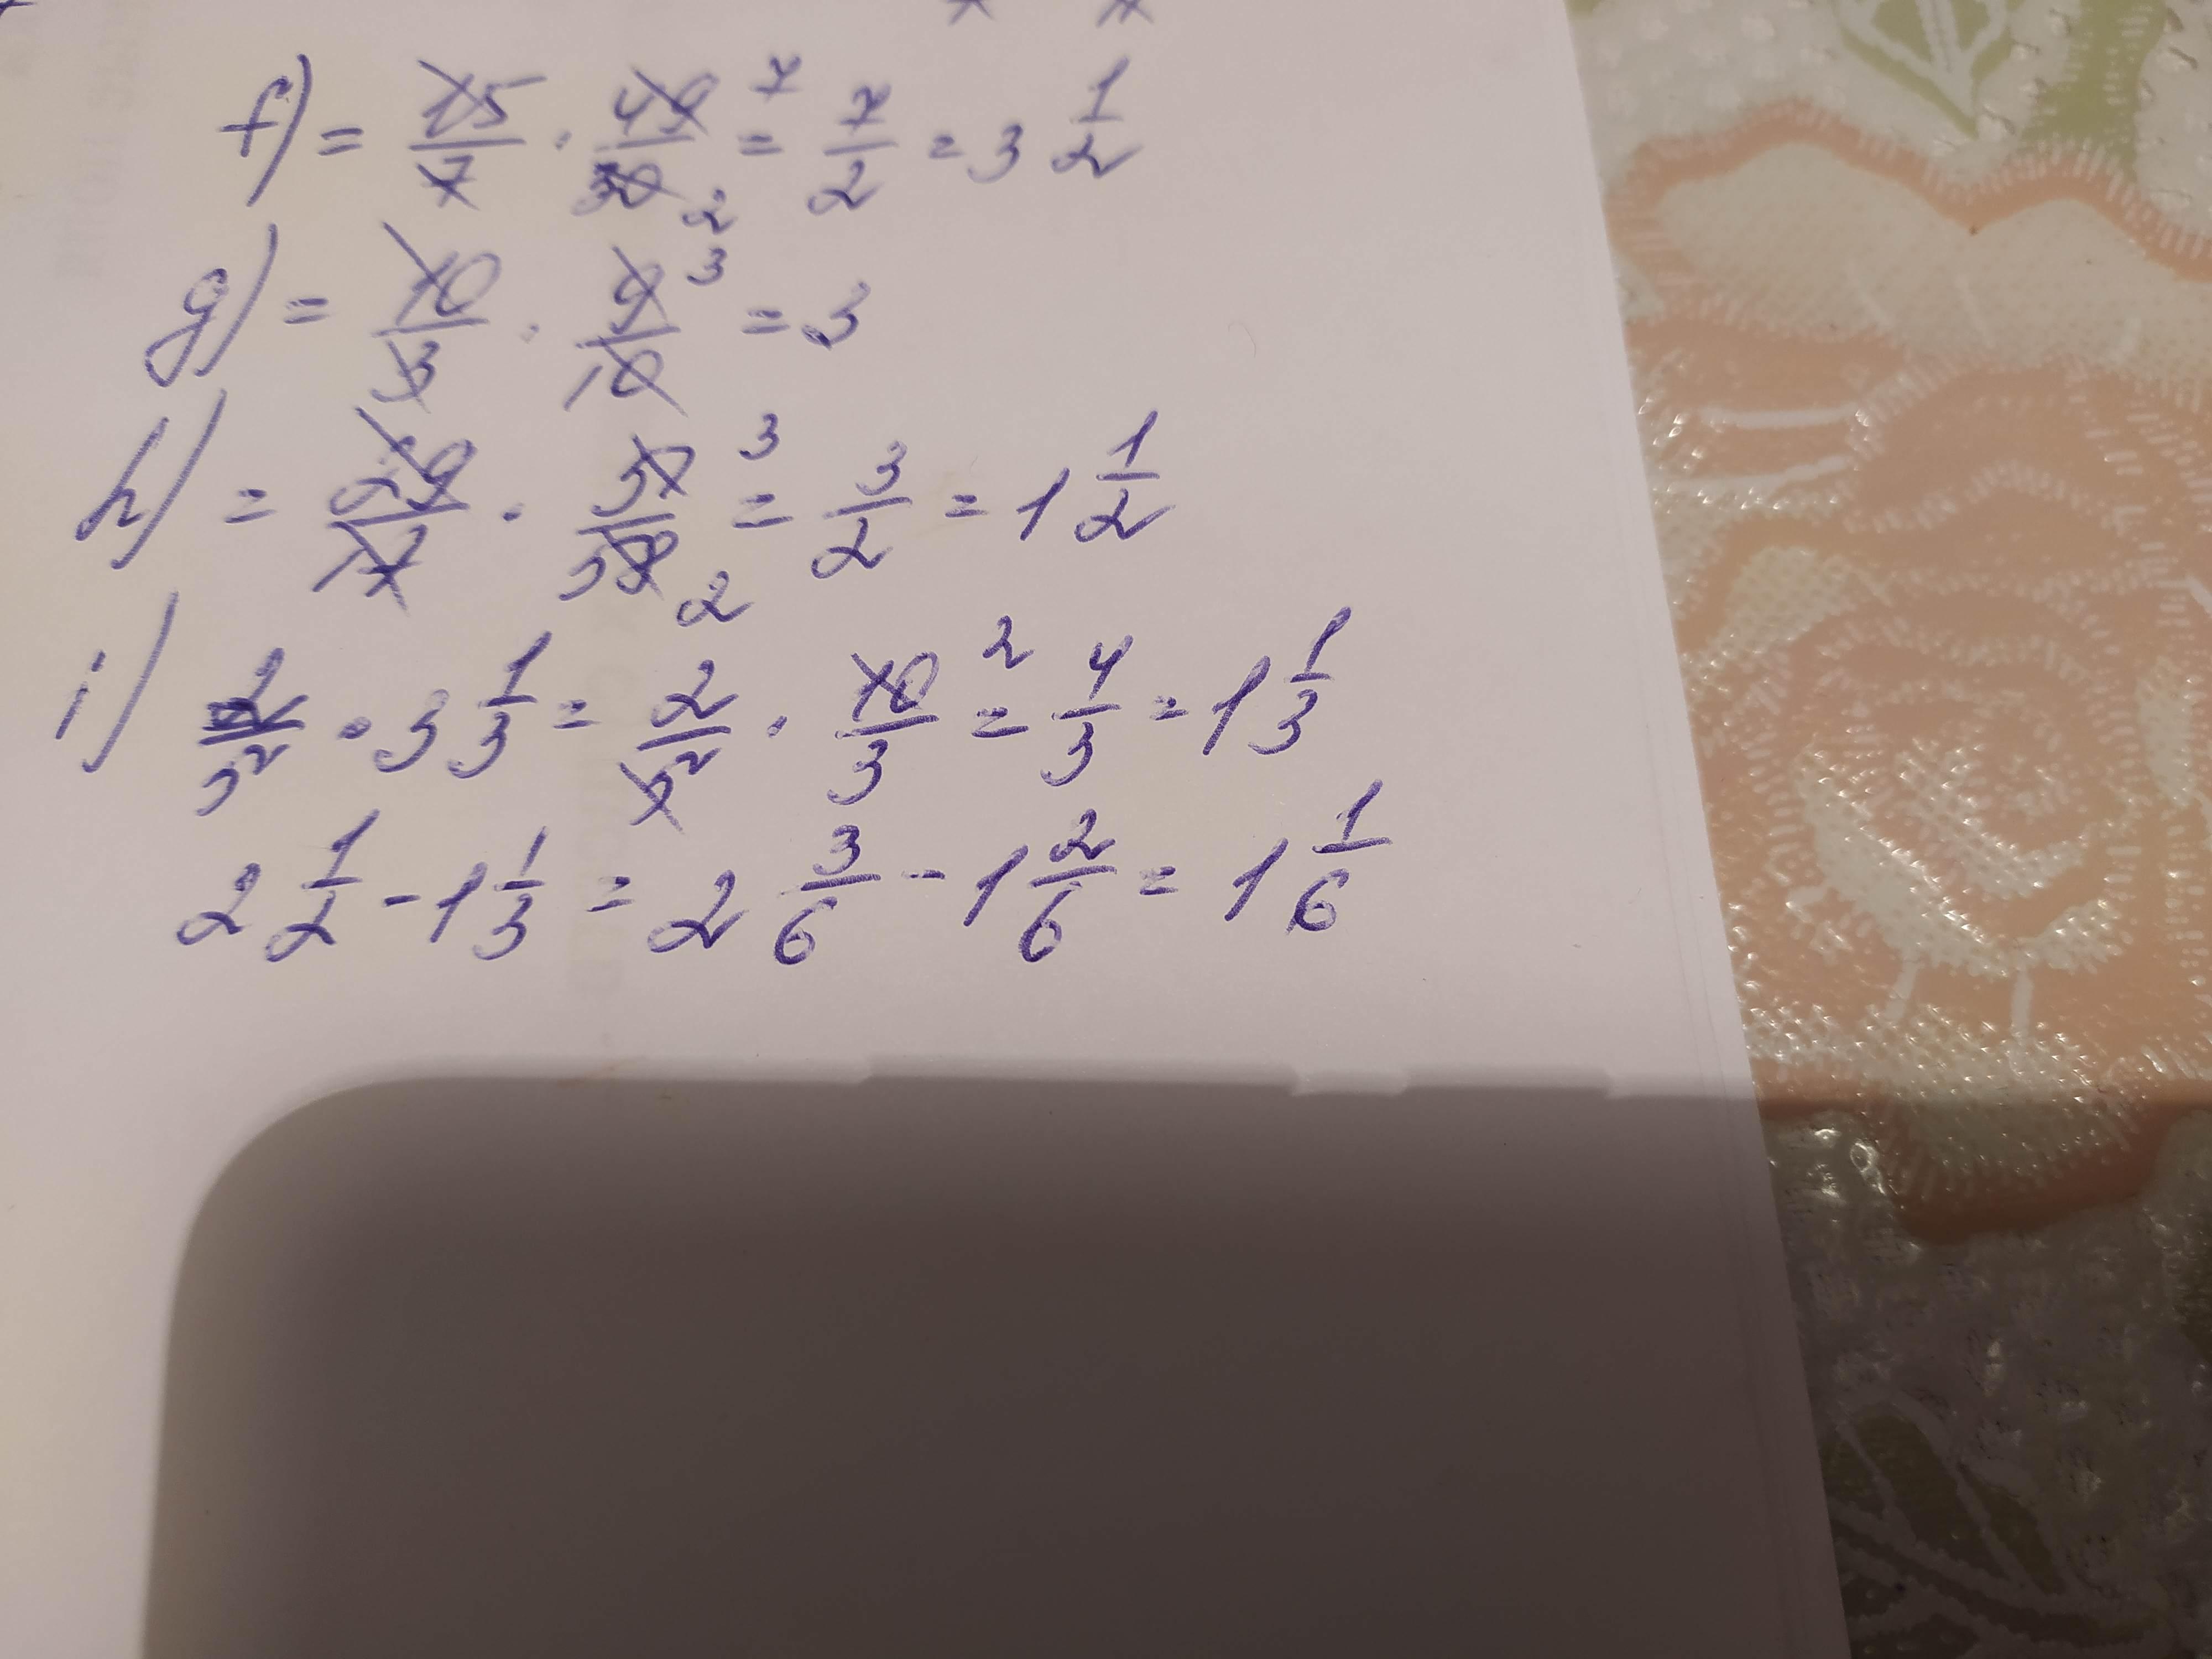 f) = 15/7 · 49/30 7 2 = 7/2 = 3 1/2
g) = 10/3 · 9/10 3 = 3
h) = 29/17 · 51/58 3 2 = 3/2 = 1 1/2
i) 2/5 · 3 1/3 = 2/5 · 10/3 2 = 4/3 = 1 1/3
2 1/2 - 1 1/3 = 2 3/6 - 1 2/6 = 1 1/6